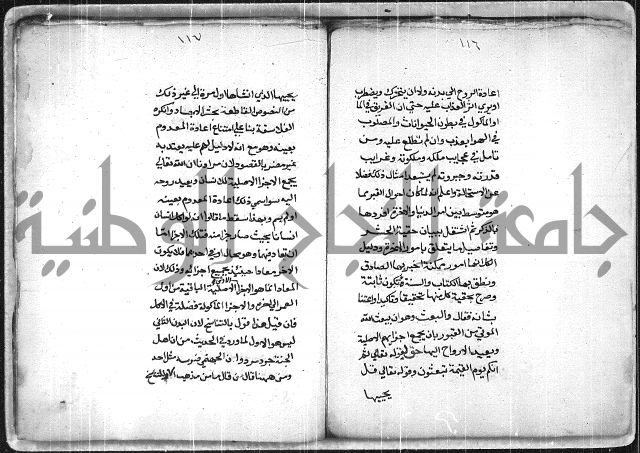 ١١٦
اعادة الروح الى بدنه ولا ان يتحرك ويضطرب
او يرى اثر العذاب عليه حتى ان الغريق في الماء
او الماكول في بطون الحيوانات والمصلوب
في الهوا يعذب وان لم نطلع عليه ومن
تامل في عجايب ملكه وملكوته وغرايب
قدرته وجبروته لم يستبعد امثال ذلك فضلا
عن الاستحالة واعلم انه لما كان احوال القبر مما
هو متوسط بين امر الدنيا والاخرة افردها
بالذكر ثم اشتغل ببيان حقية الحشر
وتفاصيل ما يتعلق بامور الاخرة ودليل
الكل انها امور ممكنة اخبر بها الصادق
ونطق بها الكتاب والسنة فتكون ثابتة
وصرح بحقية كل منها تحقيقا وتاكيدا واعتنا
بشانه فقال والبعث وهو ان يبعث الله
الموتى من القبور بان يجمع اجزاءهم الاصلية
ويعيد الارواح اليها حق لقوله تعالى ثم
انكم يوم القيمة تبعثون وقوله تعالى قل
يحييها
١١٧
يحييها الذي انشاها اول مرة الى غير ذلك
من النصوص القاطعة بحشر الاجساد وانكره
الفلاسفة بنا على امتناع اعادة المعدوم
بعينه وهو مع انه لا دليل لهم عليه يعتد به
غير مضر بالمقصود لان مرادنا ان الله تعالى
يجمع الاجزا الاصلية للانسان ويعيد روحه
اليه سوا سمي ذلك اعادة المعدوم بعينه
او لم يسم وبهذا سقط ما قالوا انه لو اكل انسان
انسانا بحيث صار جزا منه فتلك الاجزا اما
ان تعاد فيهما وهو محال او في احدهما فلا يكون
الاخر معادا بجميع اجزائه وذلك لان
المعاد انما هو الاجزا الاصلية الباقية من اول
العمر الى اخره والاجزا الماكولة فضلة في الاكل
فان قيل هذا قول بالتناسخ لان البدن الثاني
ليس هو الاول لما ورد في الحديث من ان اهل
الجنة جرد مرد وان الجهنمي ضرسه مثل احد
ومن ههنا قال من قال ما من مذهب الا
جامعة النجاح الوطنية